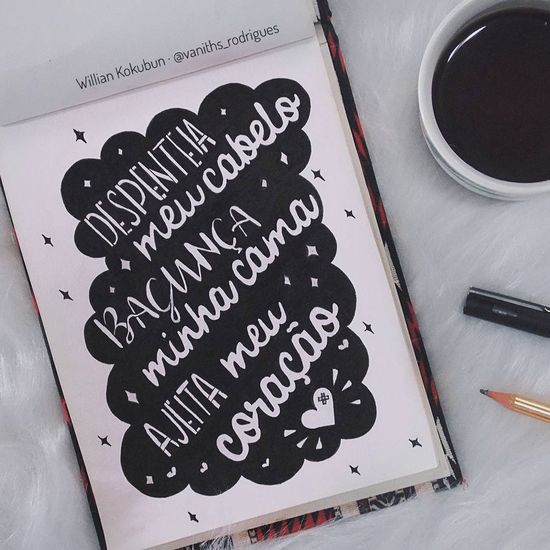 Willian Kokubun · @vaniths_rodrigues
DESPENTEIA
meu cabelo
BAGUNÇA
minha cama
AJEITA meu
coração